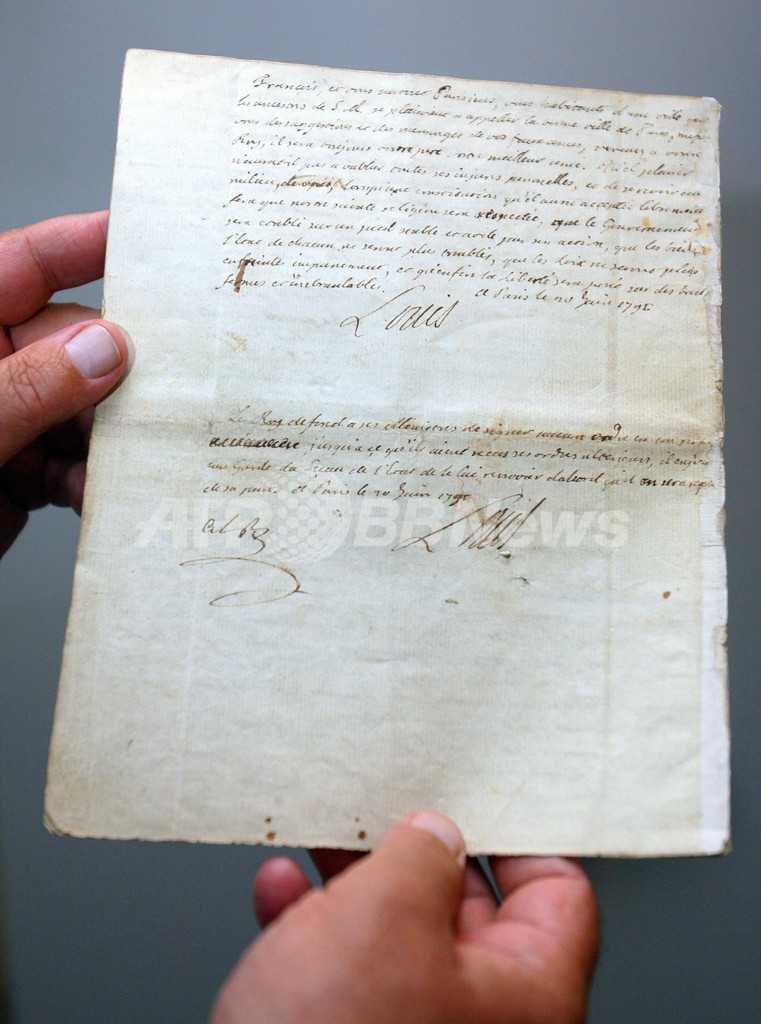 François, et vous surtout Parisiens, vous habitants d'une ville que
les ancestres de S. M. se plaisoient a appeller la bonne ville de Paris, mefiés
vous des suggestions et des mensonges de vos faux amis, revenez a votre
Roy, il sera toujours votre pere votre meilleur ami. Quel plaisir
n'aura t'il pas a oublier toutes ses injures personelles, et de se revoir au
milieu de vous, lorsqu'une constitution qu'il aura acceptée librement
fera que notre sainte religion sera respectée, que le Gouvernement
sera etabli sur un pied stable et utile par son action, que les biens
l'etat de chacun ne seront plus troublés, que les loix ne seront plus
enfreintes impunement, et qu'enfin la liberté sera posée sur des bases
fermes et inebranlables. A Paris le 20 Juin 1791
Louis
Le Roy defend a ses Ministres de signer aucun ordre en son nom
jusqu'a ce qu'ils aient receu ses ordres ulterieurs, il enjoint
au Garde du Sceau de l'Etat de le lui renvoier d'abord qu'il en sera requis
de sa part. A Paris le 20 Juin 1791
Louis
AFPBB News